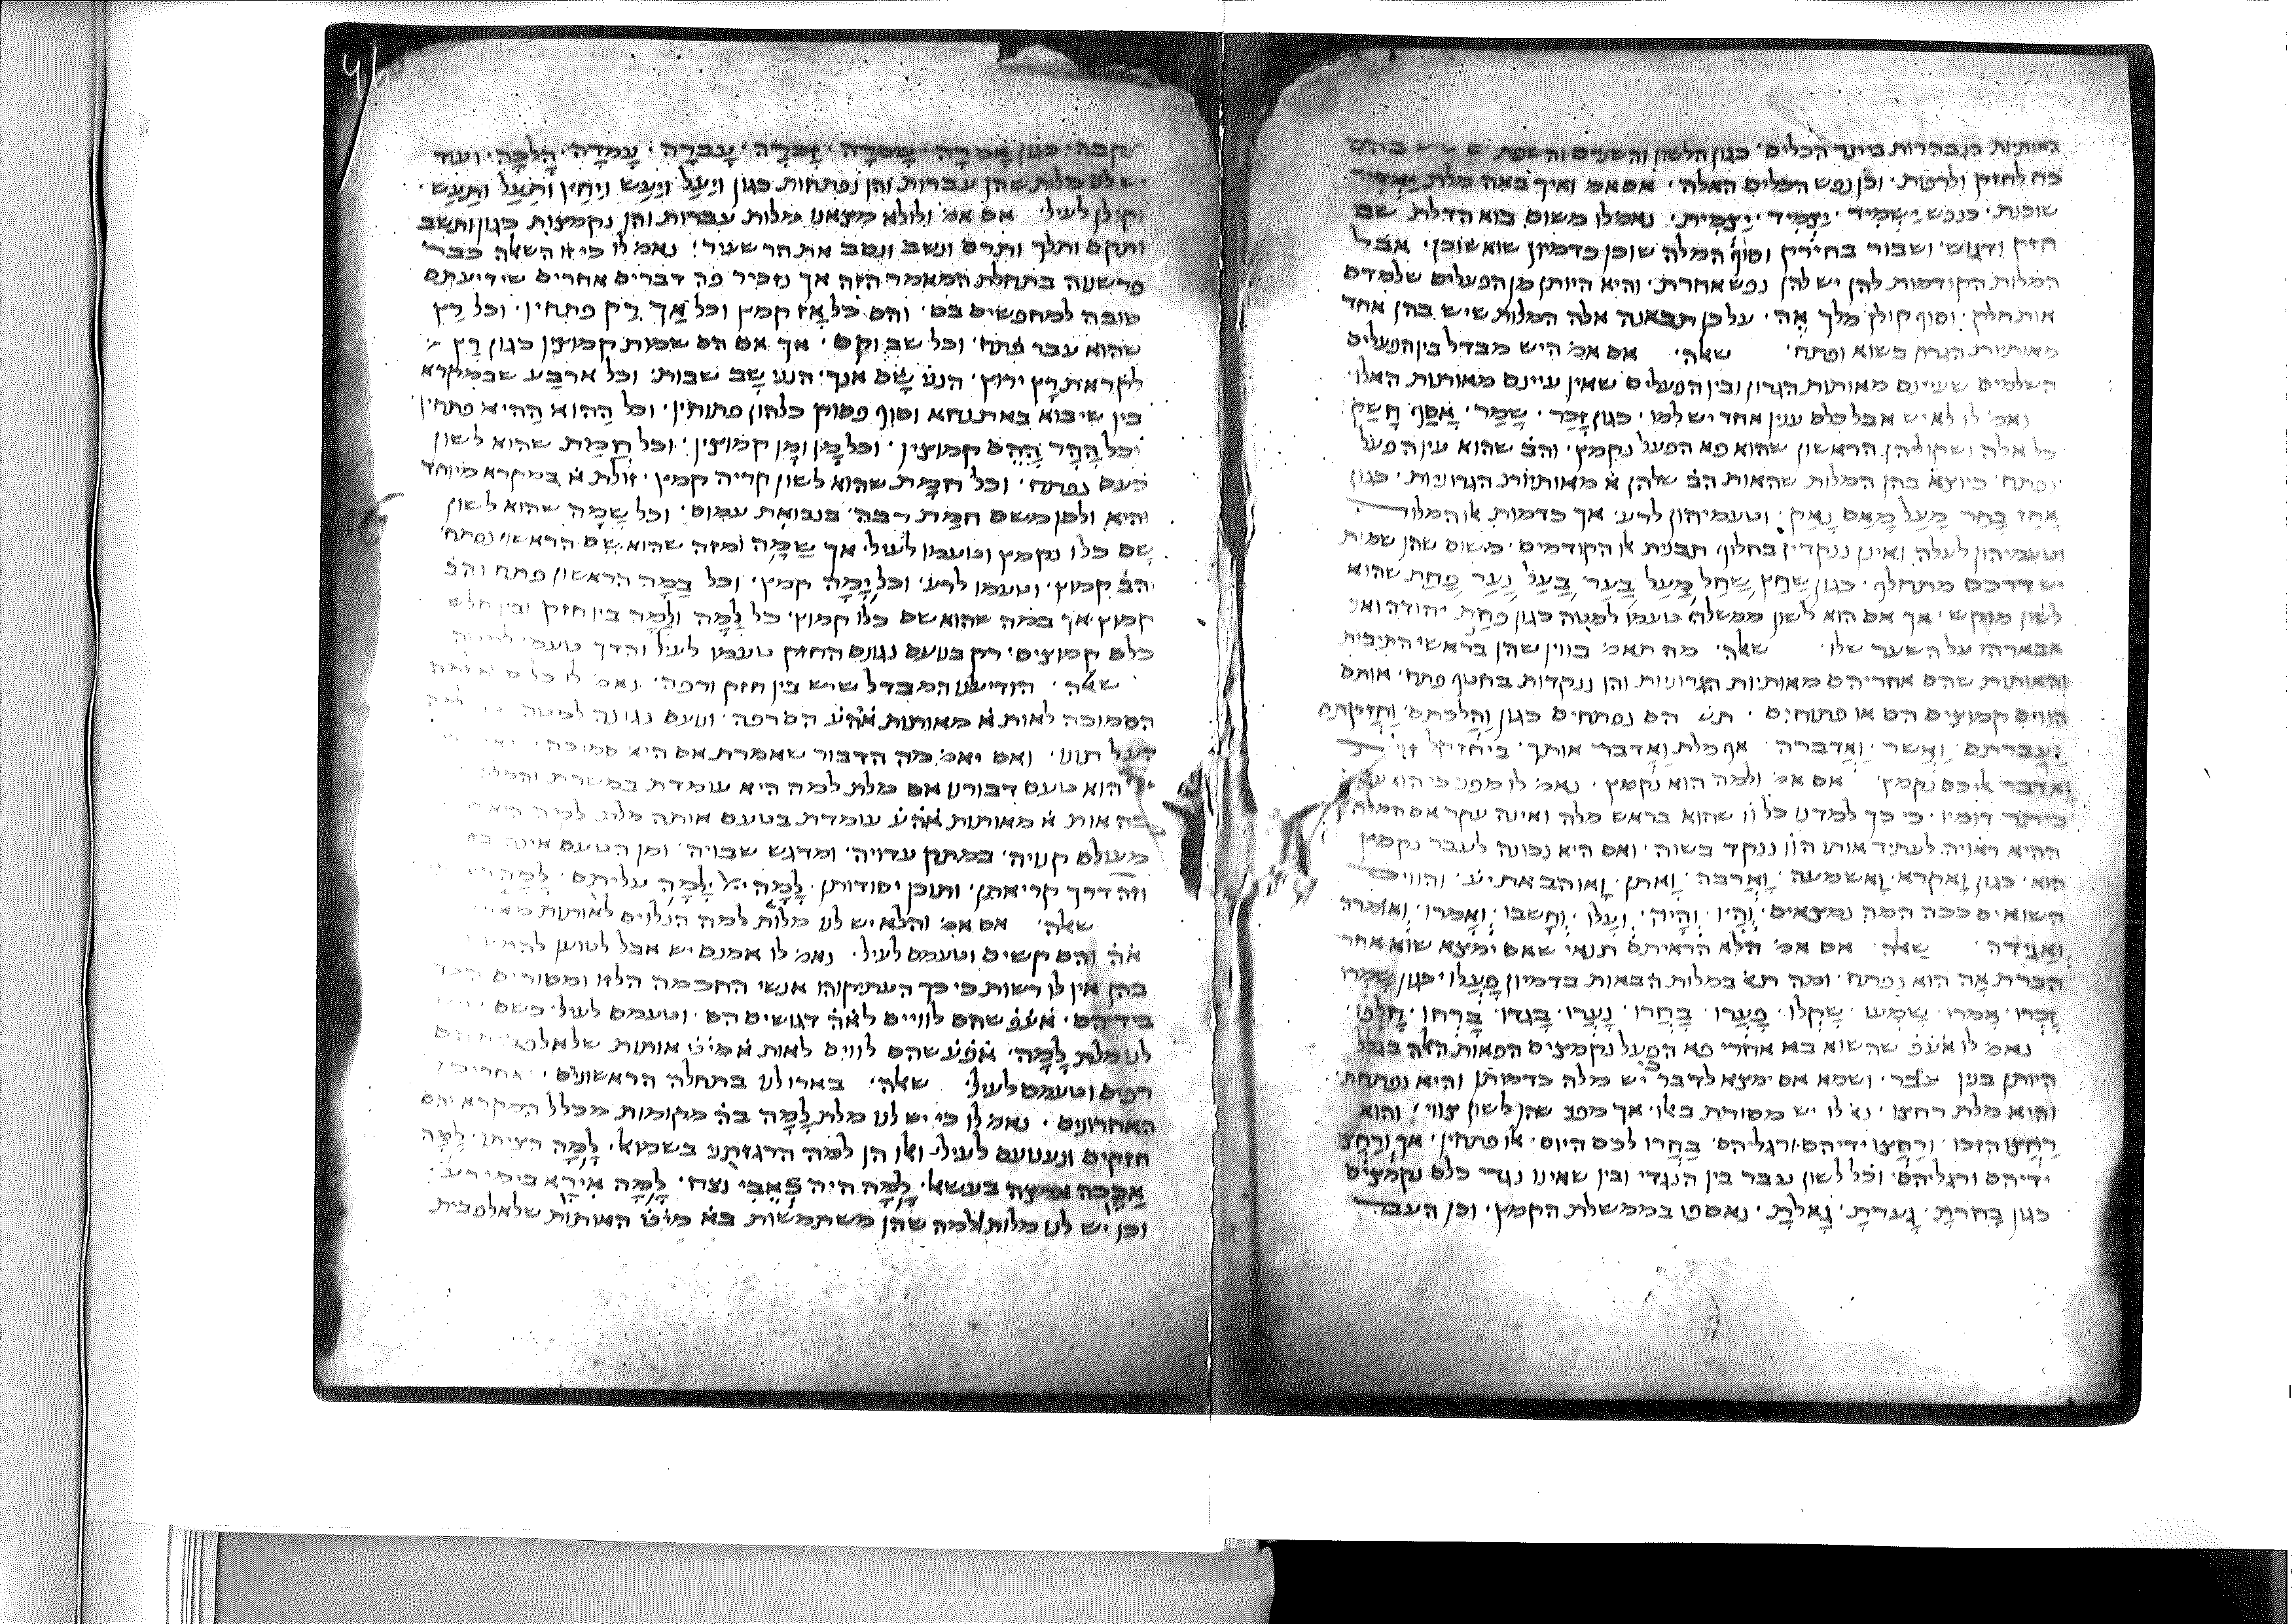 האותיות הנבהרות ביתר הכלים׳ כגון הלשון והשנים והשפתים שיש בהם
כח לחזק ולרפות׳ וכן נפש הכלים האלה׳ אם אמ׳ ואיך באה מלת יאדיר
שוכנת׳ כנפש יַשְמִיד יַצְמִיד׳ יַצְמִית׳ נאמ׳ לו משום בוא הדלת שם
חזק ודגוש׳ ושבור בחירק וסוף המלה שוכן כדמיון שוא שוכן׳ אבל
המלות הקודמות להן יש להן נפש אחרת׳ והיא היותן מן הפעלים שלמדם
אות חלק׳ וסוף קולן מלך אָה׳ על כן תבאנה אלה המלות שיש בהן אחד
מאותיות הגרון בשוא ופתח׳ שאלה׳ אם אמ׳ היש מבדל בין הפעלים
השלמים שעיינם מאותות הגרון ובין הפעלים שאין עיינם מאותות האלו׳
נאמ׳ לו לא יש אבל כלם ענין אחד יש למו׳ כגון זָכַר׳ שָמַר׳ אָסַף חָשַק׳
כל אלה ושקולהן הראשון שהוא פא הפעל נקמץ׳ והב׳ שהוא עין הפעל
נפתח׳ כיוצא בהן המלות שהאות הב׳ שלהן א׳ מאותיות הגרוניות׳ כגון
אָחַז בָחַר מָעַל מָאַס נָאַק׳ וטעמיהון לרע׳ אך כדמות אלו המלות
וטעמיהון לעלה ואינן ננקדין בחלוף תבנית אלו הקודמים׳ משום שהן שמות
יש דרכם מתחלף׳ כגון שַחַץ שַחַל מַעַל בַעַר׳ בַעַל נַעַר פַחַת שהוא
לשון מוקש׳ אך אם הוא לשון ממשלה טעמו למטה כגון פַחַת יהודה ואנ
אבארהו על השער שלו׳ שאלה׳ מה תאמ׳ בווין שהן בראשי התיבות
והאותות שהם אחריהם מאותיות הגרוניות והן ננקדות בחטף פתח׳ אותם
הווים קמוצים הם או פתוחים׳ תש׳ הם נפתחים כגון וַהֲלַכְתֶם׳ וַחֲזַקְתֶם
וַעברתם וַאֲשֶר׳ וַאדברה׳ אף מלת וַאדבר אותך׳ ביחזקאל
ואדבר אליכם נקמץ׳ אם אמ׳ ולמה הוא נקמץ׳ נאמ׳ לו מפני כי הוא
כיתר דומיו׳ כי כך למדנו כל וו שהוא בראש מלה ואינה עקר אם המלה
ההיא ראויה לעתיד אותו הוו ננקד בשוה׳ ואם היא נכונה לעבר נקמץ
הוא׳ כגון וָאקרא׳ וָאשמעה׳ וָארבה׳ וָאתן׳ וָאוהב את יע׳ והווים
השואים ככה המה נמצאים׳ וְהָיו׳ וְהָיה׳ וְעָלו׳ וְחָשבו׳ וְאָמרו׳ וְאומרה
ואגידה׳ שאלה׳ אם אמ׳ הלא הראיתם תנאי שאם ימצא שוא אחר
הברת אָה הוא נפתח׳ ומה תאמ׳ במלות הבאות בדמיון פָעֲלו׳ כגון שָמְרו
זָכְרו׳ אָמרו׳ שָמְעו׳ שָקְלו׳ פָעֲרו׳ בָחֲרו׳ נָעֲרו׳ בָגדו׳ בָרְחו׳ חָלְפו׳
נאמ׳ לו אע׳פ׳ שהשוא בא אחרי פא הפעל נקמצים הפאות האלה בגלל
היותן בנין עבר׳ ושמא אם ימצא לדבר כי יש מלה כדמותן והיא נפתחת׳
והיא מלת רחצו׳ נא׳ לו יש מסורת באלו׳ אך מפני שהן לשון צווי׳ והוא
רַחֲצו הזכו׳ ורַחֲצו ידיהם ורגליהם׳ בַחֲרו לכם היום׳ אלו פתחין׳ אך וְרָחֲצו
ידיהם ורגליהם׳ וכל לשון עבר בין הנגדי ובין שאינו נגדי כלם נקמצים
כגון בָחרתָ׳ גָערתָ׳ גָאלתָ׳ נאספו בממשלת הקמץ׳ וכן העבר
נקבה׳ כגון אָמְרָה׳ שָמְרָה׳ זָכְרָה׳ עָבְרָה׳ עָמְדָה׳ הָלְכָה׳ ועוד
יש לנו מלות שהן עברות והן נפתחות כגון ויַעַל ויַעַש ויִחַץ ותַעַל ותַעַש׳
וקולן לעיל׳ אם אמ׳ ולולא מצאנו מלות עברות והן נקמצות כגון ותשב
ותקם ותלך ותרם ונשב ונסב את הר שעיר׳ נאמ׳ לו כי זו השאלה כבר
פרשנוה בתחלת המאמר הזה אך נזכיר פה דברים אחרים שידיעתם
טובה למחפשים בם׳ והם כל אָז קמץ וכל אַך רַק פתחין׳ וכל רַץ
שהוא עבר פתח׳ וכל שב וקם׳ אך אם הם שמות קמוצין כגון רָץ
לקראת רָץ ירוץ׳ הנני שָם אנך׳ הנני שָב שבות׳ וכל ארבַע שבמקרא
בין שיבוא באתנחא וסוף פסוק כלהון פתוחין׳ וכל הַהוא הַהיא פתחין
וכל הָהָר הָהֵם קמוצין׳ וכל מָן ומָן קמוצין׳ וכל חֲמַת שהוא לשון
כעס נפתח׳ וכל חמָת שהוא לשון קריה קמץ׳ זולת א׳ במקרא מיוחד
והיא ולכו משם חמַת רבה׳ בנבואת עמוס׳ וכל שָמָה שהוא לשון
שָם כלו נקמץ וטעמו לעיל׳ אך שַמָה ומזה שהוא שֵם הראשון נפתח׳
והב׳ קמוץ׳ וטעמו לרע׳ וכל יָמָה קמץ׳ וכל בַמָה הראשון פתח והב׳
קמוץ׳ אך במה שהוא שם כלו קמוץ׳ כל לָמָה ולָמָה בין חזק ובין חלש
כלם קמוצים׳ רק בטעם נגונם החזק טעמו לעיל והרך טעמו
שאלה׳ הודיענו המבדל שיש בין חזק ורפה׳ נאמ׳ לו כל
הסמוכה לאות א׳ מאותות אהע׳ הם רפה׳ וטעם נגונה למטה
העל תוע׳ ואם יאמ׳ מה הדבור שאמרת אם היא סמוכה׳
הוא טעם דבורנו אם מלת למה היא עומדת במשרת
בה אות א׳ מאותות אהע׳ עומדת בטעם אותה מלת למה היא
מעולם קנויה׳ במתק עדויה׳ ומדגש שבויה׳ ומן הטעם אינה
וזה דרך קריאתן׳ ותוכן יסודותן׳ לָמָה יי׳ לָמָה עליתם׳ לָמָה
שאלה׳ אם אמ׳ והלא יש לנו מלות למה הנלוים לאותות
אה׳ והם קשים וטעמם לעיל׳ נאמ׳ לו אמנם יש אבל לטוען
בהן אין לו רשות כי כך העתיקוהו אנשי החכמה הלזו ומסורים
בידיהם׳ אע׳פ׳ שהם לוויים לאה׳ דגושים הם׳ וטעמם לעיל׳ כשם
לנו מלת לָמָה׳ אפ׳ע׳ שהם לווים לאות א׳ מי׳ט׳ אותות שלאלפבית
רפים וטעמם לעיל׳ שאלה׳ בארו לנו בתחלה הראשונים׳
האחרונים׳ נאמ׳ לו כי יש לנו מלת לָמָה בה׳ מקומות מכלל המקרא והם
חזקים ונעטעם לעיל׳ ואלו הן למה הרגזתני בשמוא׳ לָמָה הציתו׳ לָמָה
אַכֶכָה ארצה בעשא׳ לָמָה היה כאבי נצח׳ לָמָה אירָא בימי רע׳
וכן יש לנו מלות למה שהן משתמשות בא׳ מי׳ט׳ האותות שלאלפבית